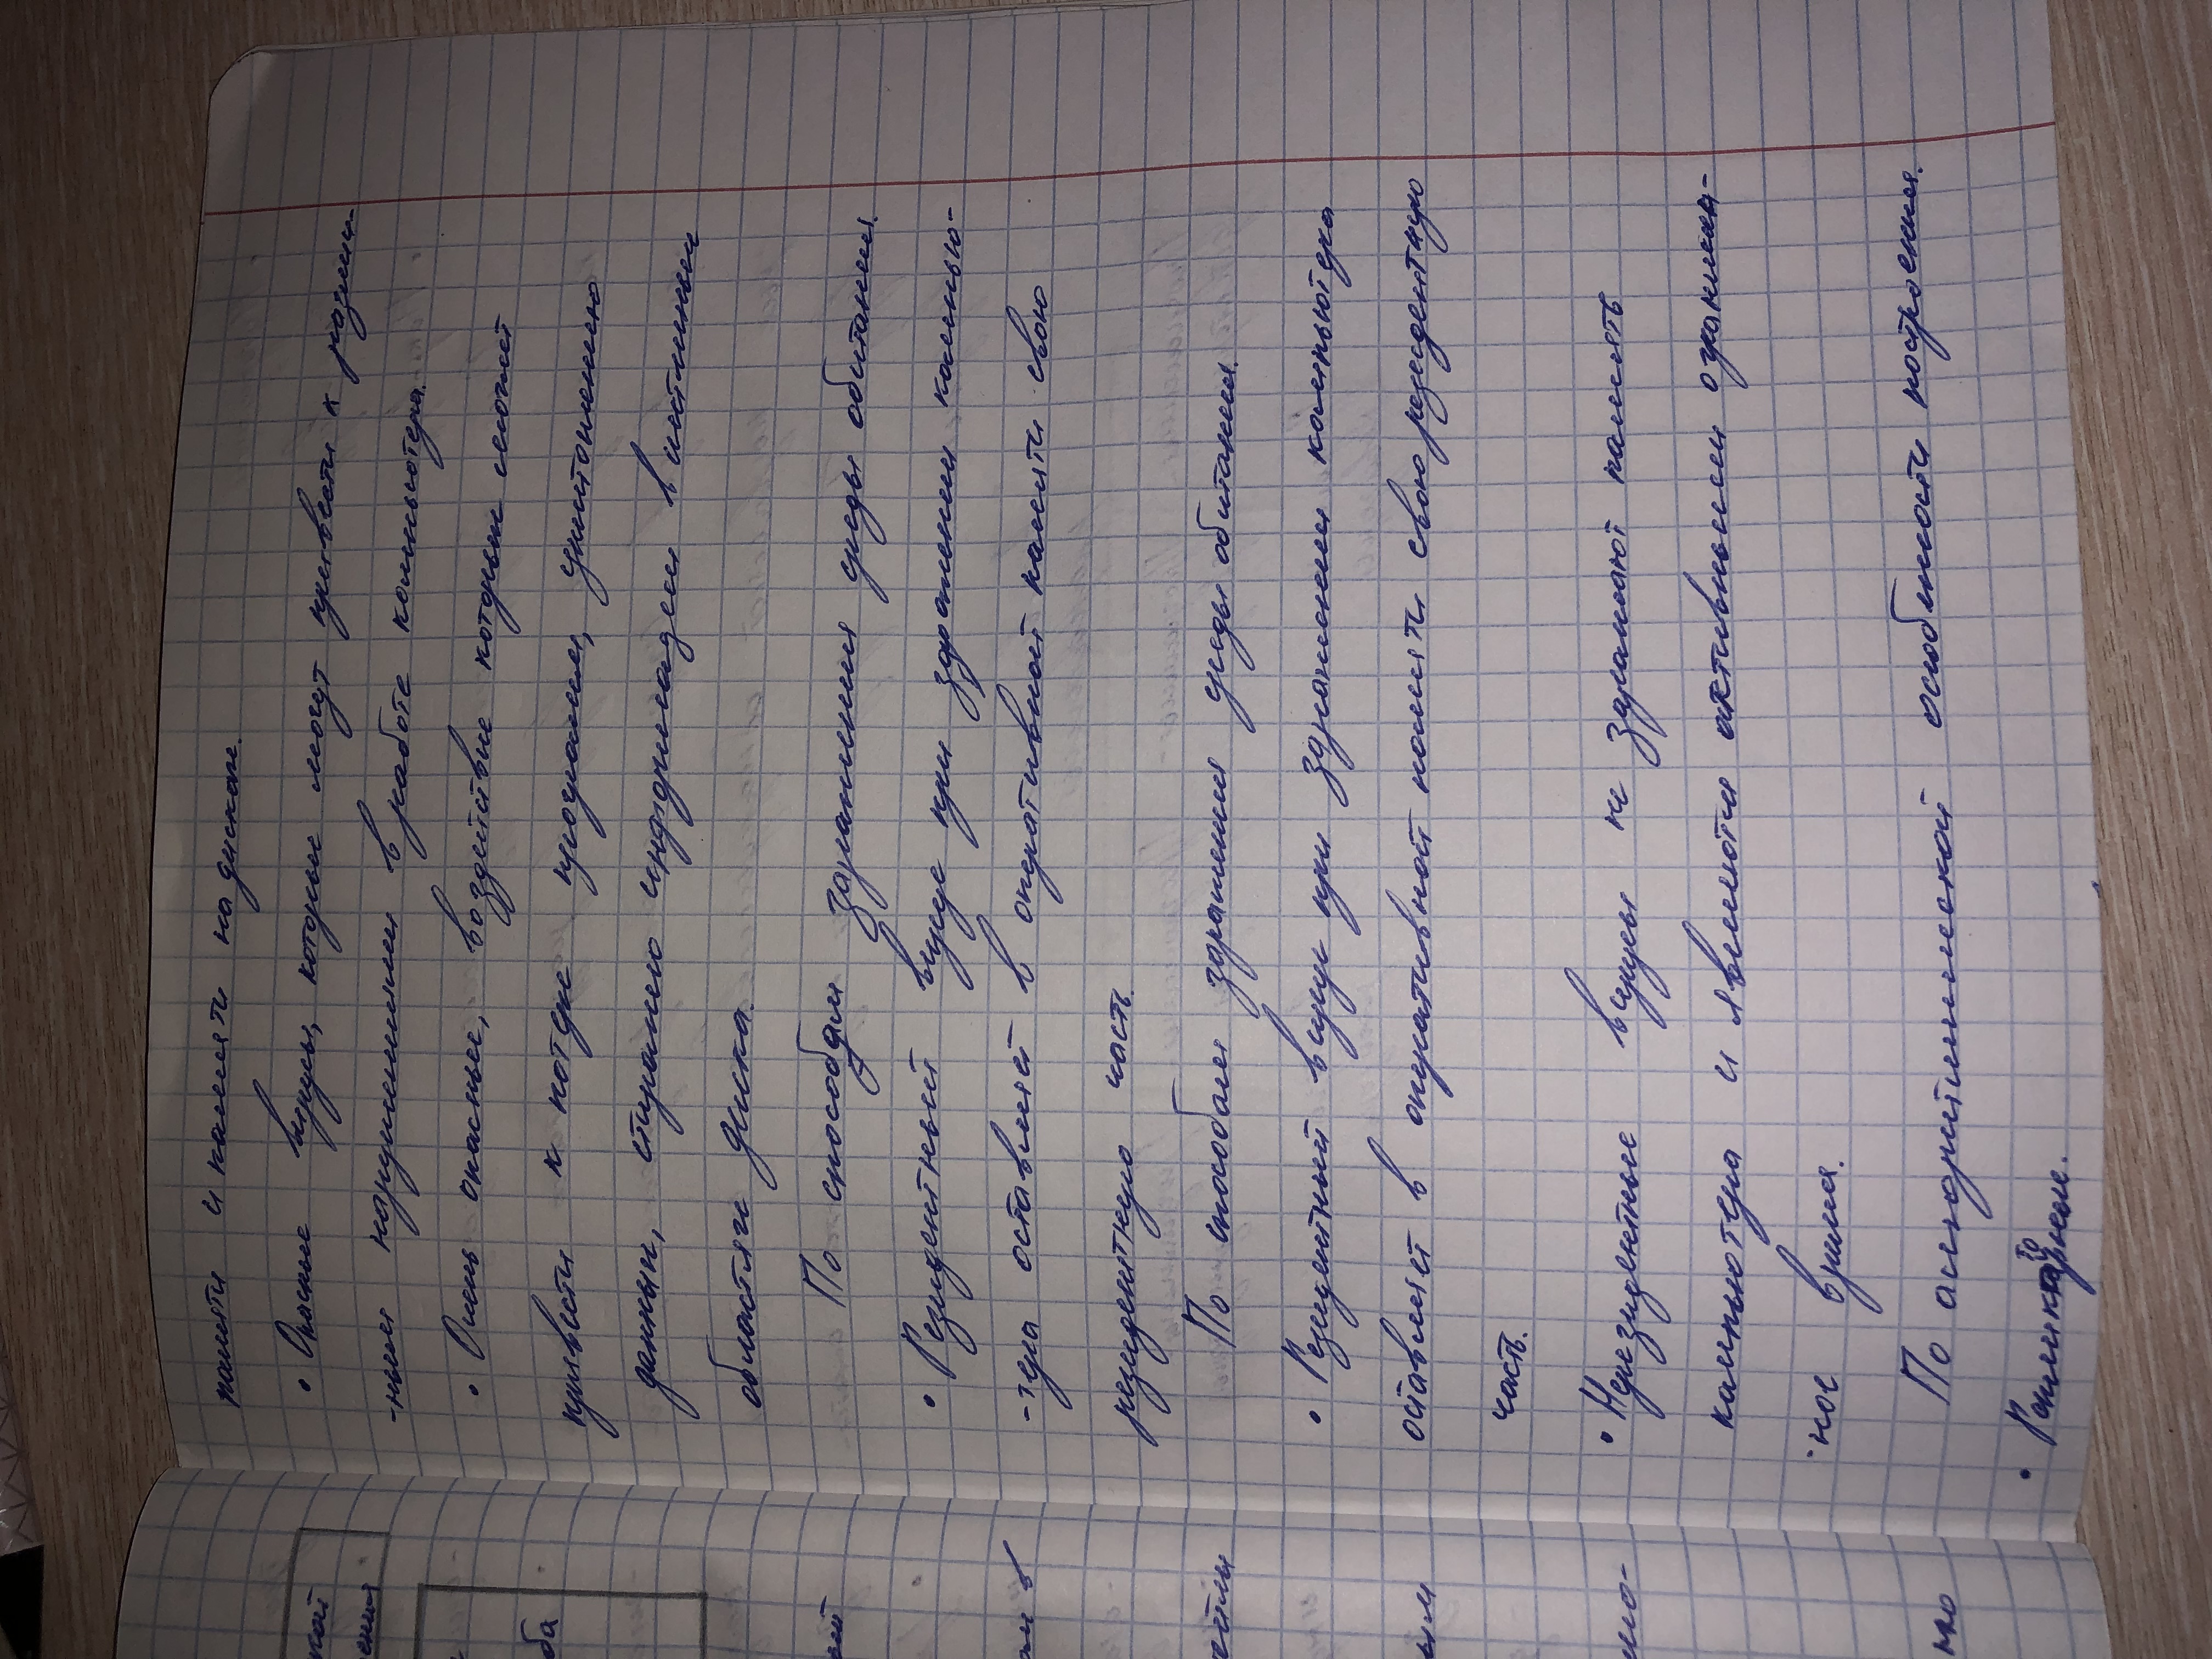 памяти и память на диске.
• Опасные вирусы, которые могут привести к различ-
-ным нарушениям в работе компьютера.
• Очень опасные, воздействие которых может
привести к потере программ, уничтожению
данных, стиранию информации в системных
областях диска.
По способам заражения среды обитания.
• Резидентный вирус при заражении компью-
-тера оставляет в оперативной памяти свою
резидентную часть.
По способам заражения среды обитания.
• Резидентный вирус при заражении компьютера
оставляет в оперативной памяти свою резидентную
часть.
• Нерезидентные вирусы не заражают память
компьютера и являются активными ограничен-
-ное время.
По алгоритмической особенности построения.
• Репликаторные.